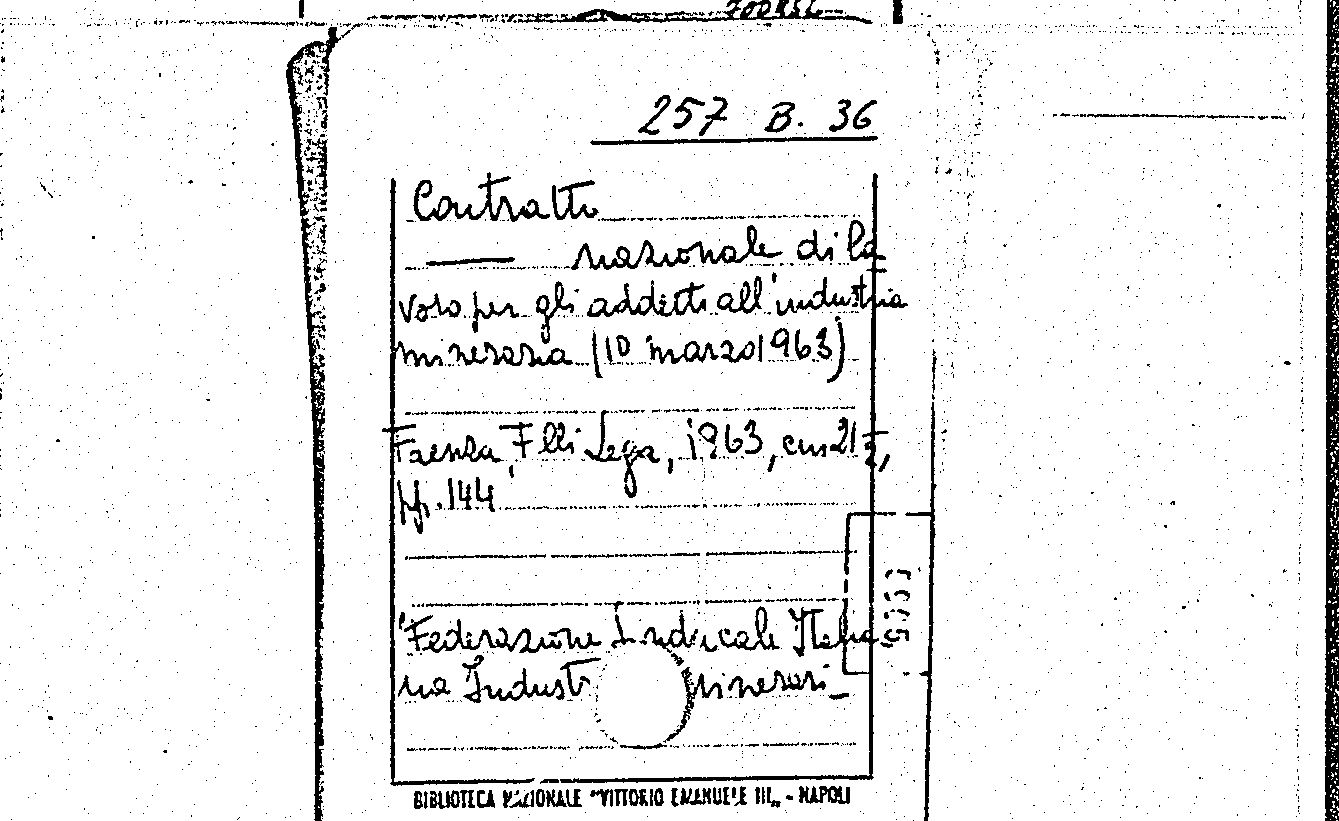 257 B. 36
Contratto
— nazionale di la
voro per gli addetti all'industria
mineraria (10 marzo 1963)
Faenza, F.lli Lega, 1963, cm 21
pp. 144
Federazione Sindacale Italia
na Industr minerari
BIBLIOTECA NAZIONALE "VITTORIO EMANUELE III" - NAPOLI